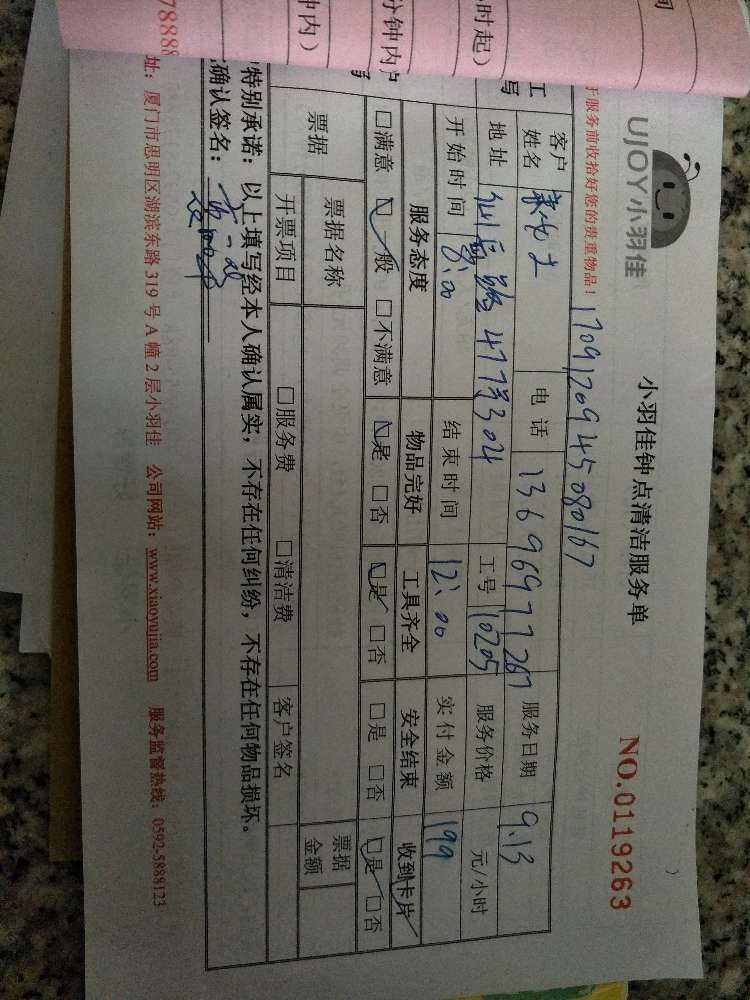 UJOY小羽佳
小羽佳钟点清洁服务单
NO.0119263
于服务前收拾好您的贵重物品！
1709120945080167
客户姓名 电话 13696977267 服务日期 9.13
地址 仙岳路477号304 工号 10205 服务价格 元/小时
开始时间 8:00 结束时间 12:00 实付金额 199
服务态度 物品完好 工具齐全 安全结束 收到卡片
□满意 □一般 □不满意 □是 □否 □是 □否 □是 □否 □是 □否
票据 票据名称 票据金额
开票项目 □服务费 □清洁费 客户签名
特别承诺：以上填写经本人确认属实，不存在任何纠纷，不存在任何物品损坏。
确认签名：
址：厦门市思明区湖滨东路319号A幢2层小羽佳 公司网站：www.xiaoyujia.com 服务监督热线：0592-5888123
78888
时起）
分钟内
钟内）